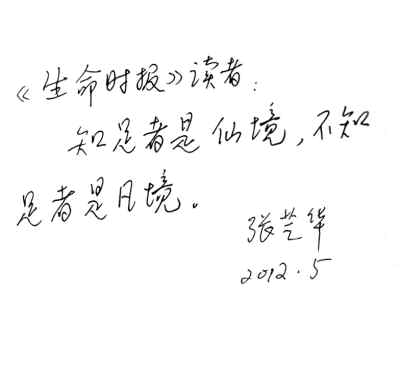 《生命时报》读者：
知足者是仙境，不知
足者是凡境。
张芝华
2012.5